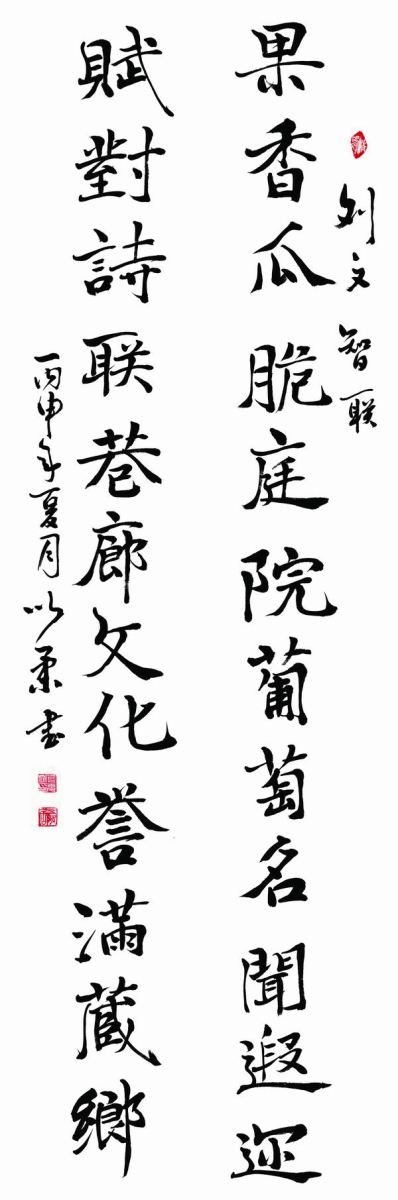 刘文智联
果香瓜脆庭院葡萄名聞遐迩
賦對詩联巷廊文化誉滿蔵鄉
丙申年夏月以柔书